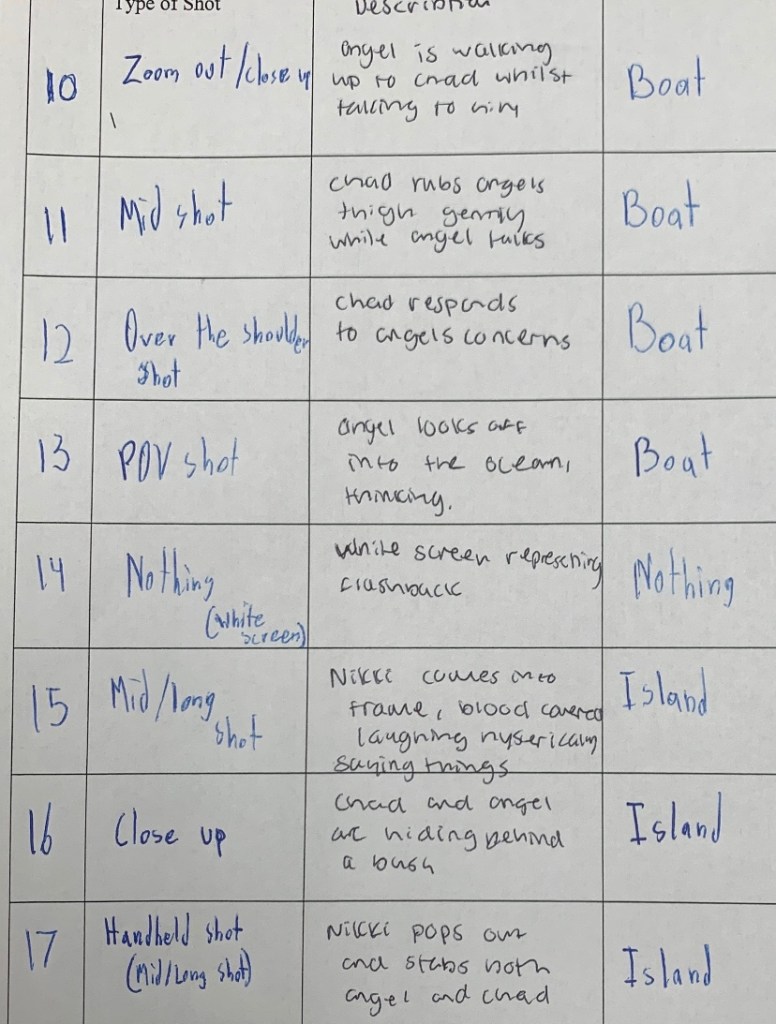 Type of Shot
Description
10
Zoom out/close up
angel is walking
up to chad whilst
talking to him
Boat
11
Mid shot
chad rubs angels
thigh gently
while angel talks
Boat
12
Over the shoulder
shot
chad responds
to angels concerns
Boat
13
POV shot
angel looks off
into the ocean,
thinking.
Boat
14
Nothing
(white
screen)
white screen represching
flashback
Nothing
15
Mid/long
shot
Nikki comes into
frame, blood covered
laughing hysterically
saying things
Island
16
Close up
Chad and angel
are hiding behind
a bush
Island
17
Handheld shot
(Mid/Long shot)
Nikki pops out
and stabs both
angel and chad
Island